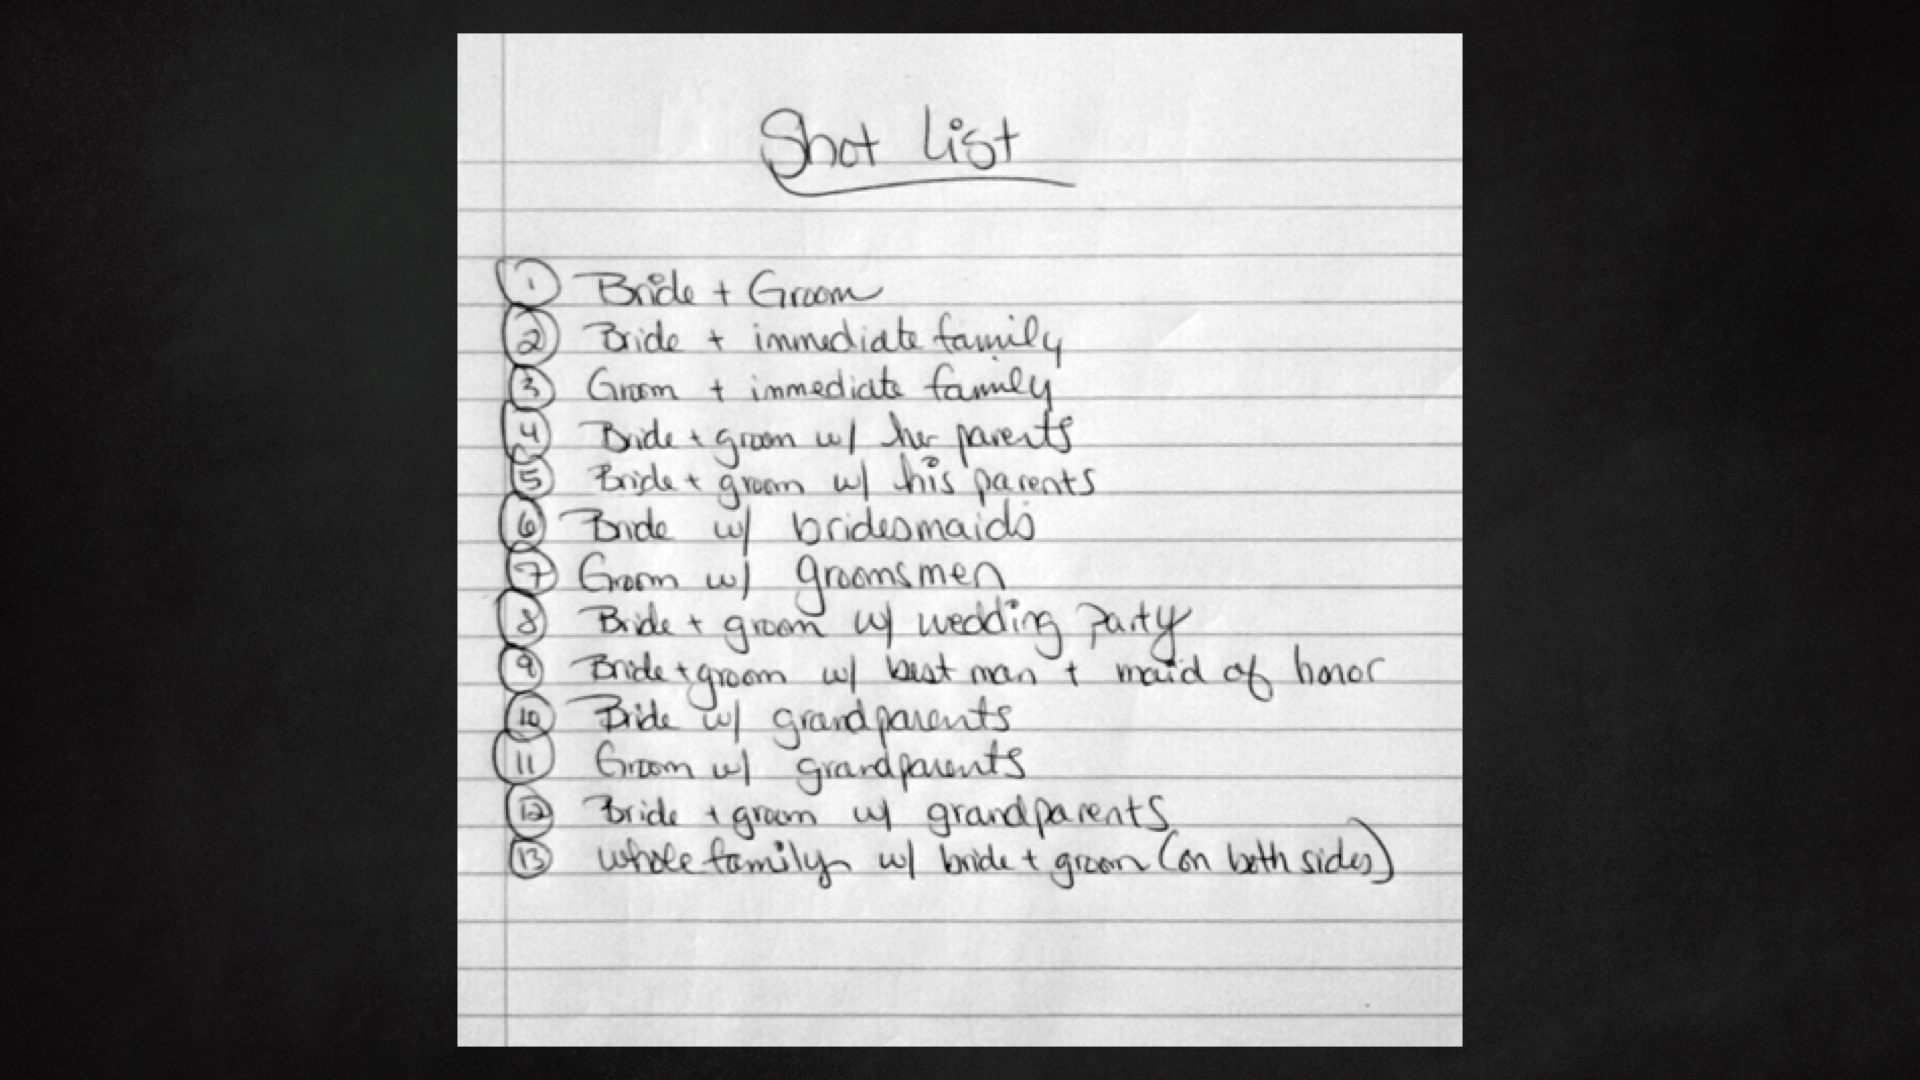 Shot List
1 Bride + Groom
2 Bride + immediate family
3 Groom + immediate family
4 Bride + groom w/ her parents
5 Bride + groom w/ his parents
6 Bride w/ bridesmaids
7 Groom w/ groomsmen
8 Bride + groom w/ wedding party
9 Bride + groom w/ best man + maid of honor
10 Bride w/ grandparents
11 Groom w/ grandparents
12 Bride + groom w/ grandparents
13 whole family w/ bride + groom (on both sides)